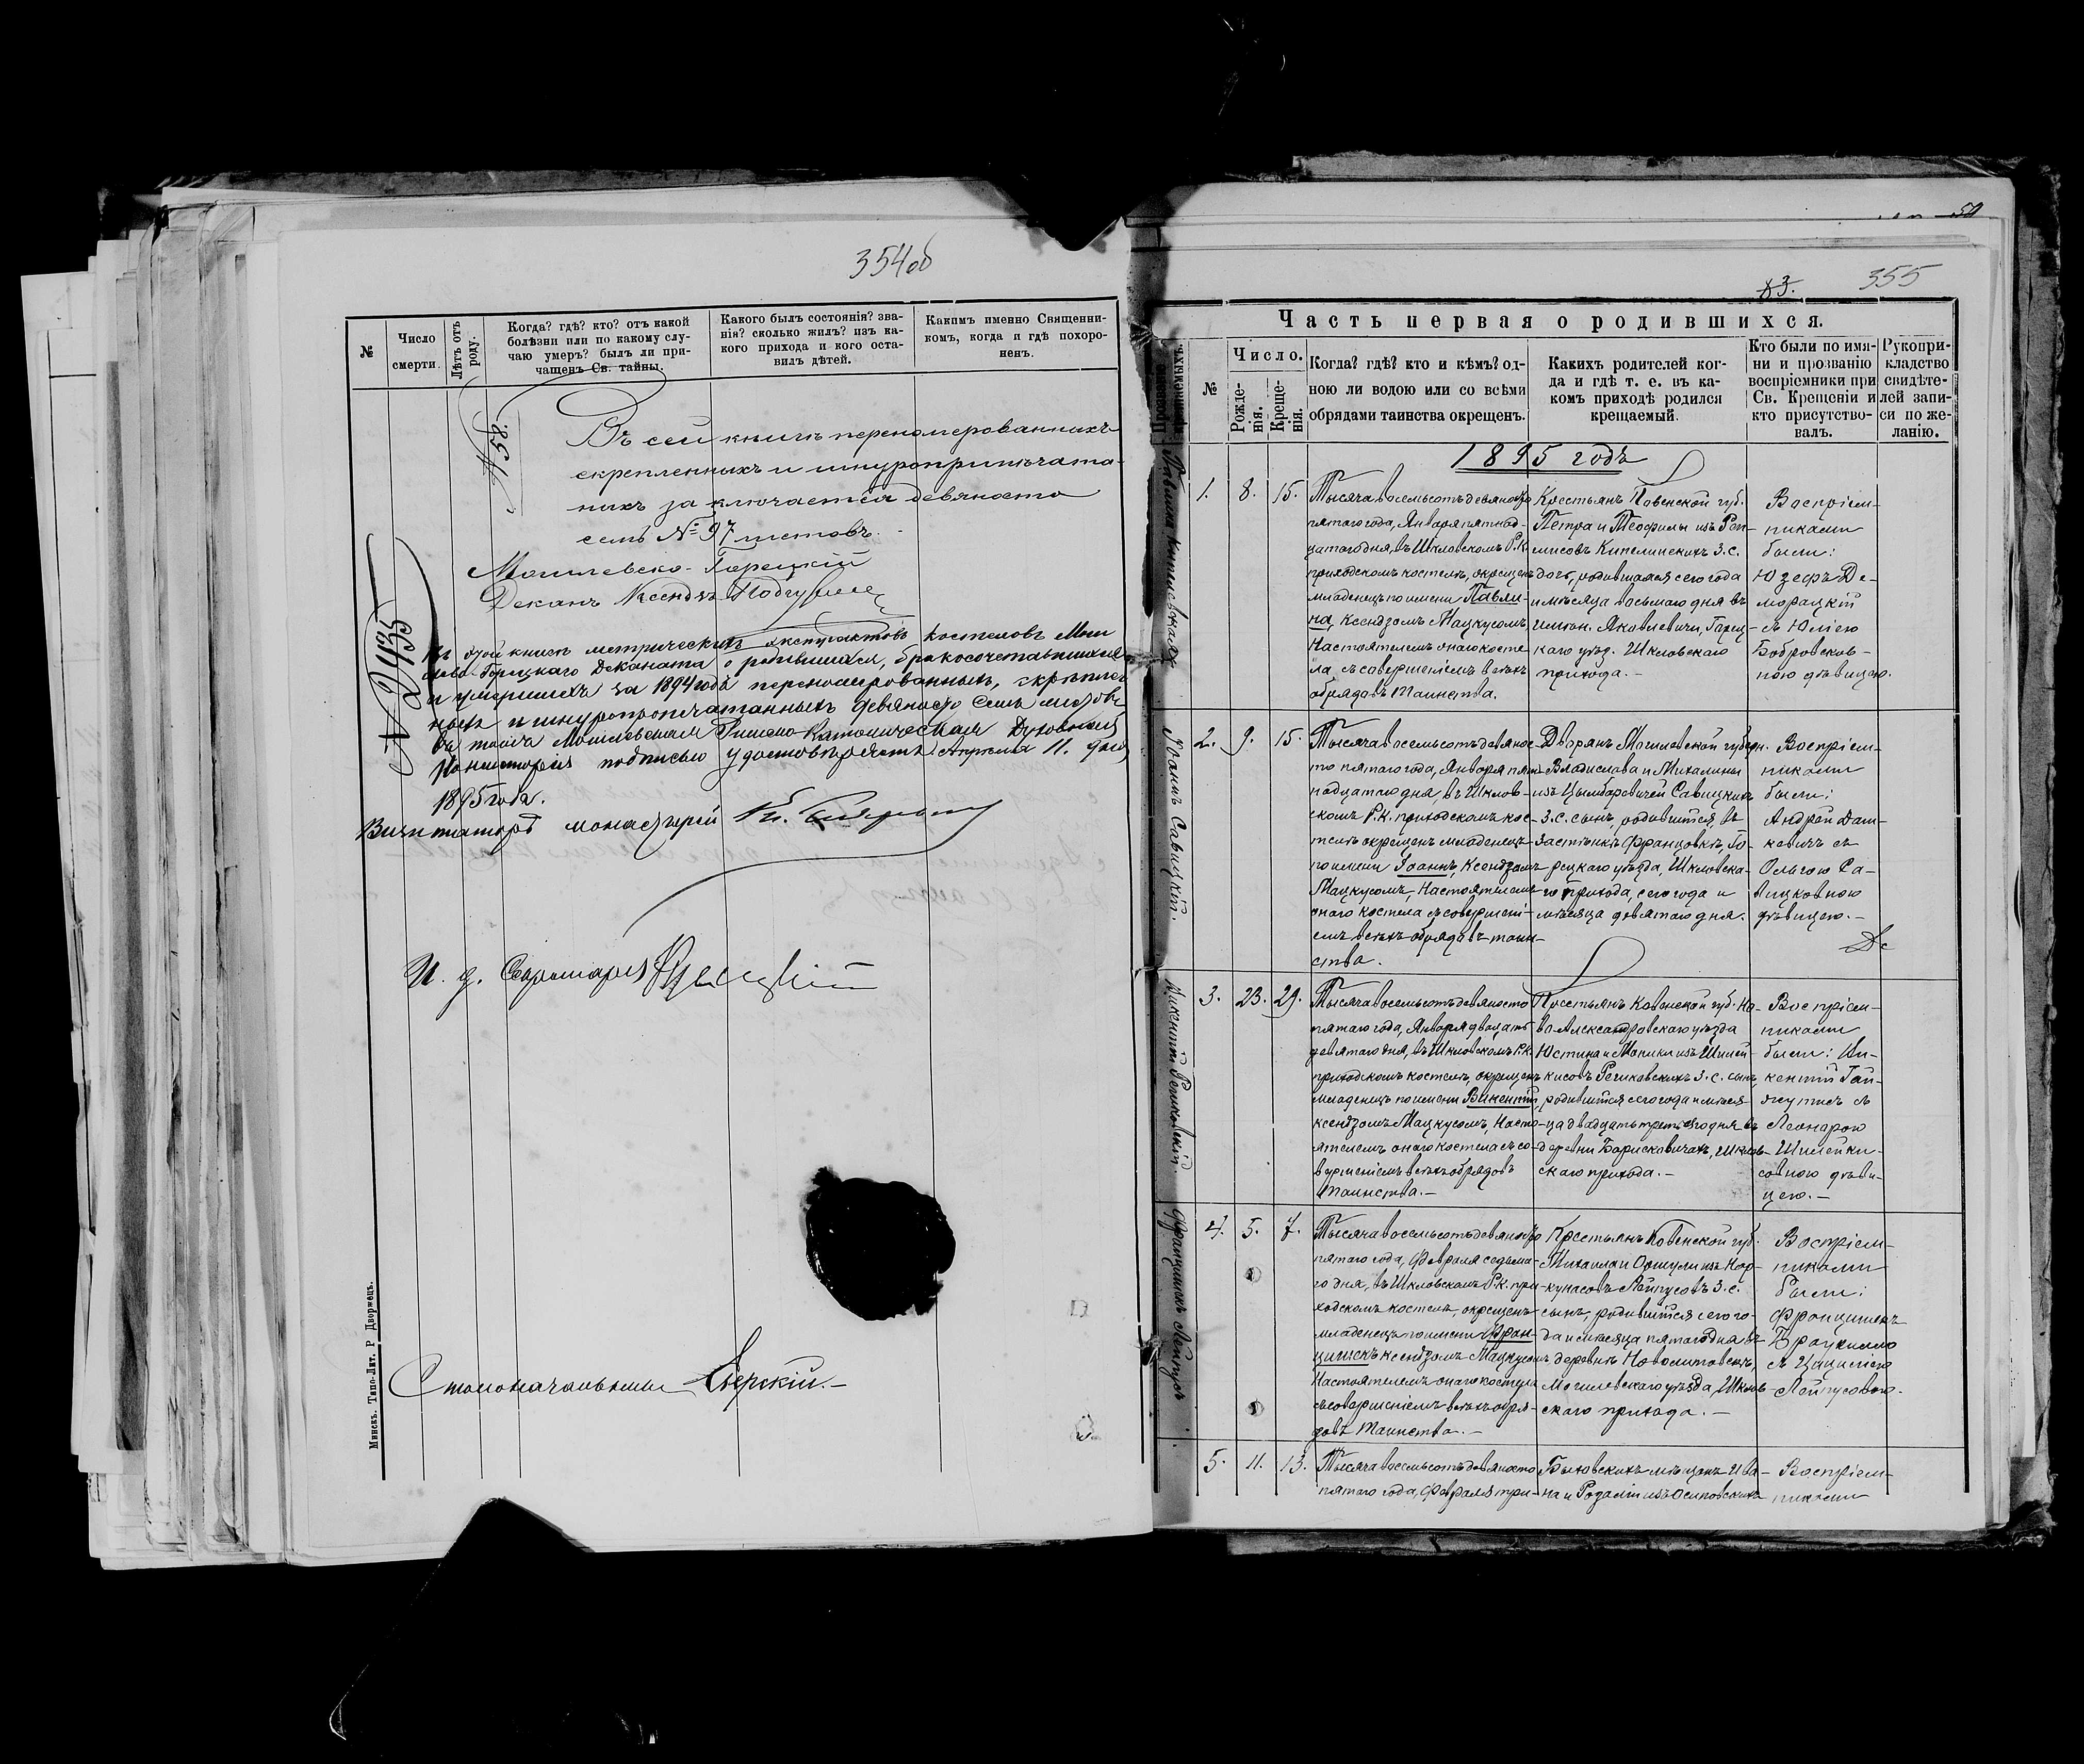 354об
№
Число смерти.
Лѣтъ отъ роду.
Когда? гдѣ? кто? отъ какой
болѣзни или по какому слу-
чаю умеръ? былъ ли при-
чащенъ Св. тайны.
Какого былъ состоянія? зва-
нія? сколько жилъ? изъ ка-
кого прихода и кого оста-
вилъ дѣтей.
Какимъ именно Священни-
комъ, когда и гдѣ похоро-
ненъ.
№ 58
Въ сей книгѣ перенумерованныхъ
скрепленныхъ и шнуропри печата-
ныхъ заключается девяносто
семь № 97 листовъ.
Могилевско-Горецкій
Деканъ Ксендзъ
№ 2435
Въ этой книгѣ метрическихъ экстрактовъ костеловъ Моги
лево-Горецкаго Деканата о родившихся, бракосочетавшихся
и умершихъ за 1894 годъ перенумерованныхъ, скрѣплен
ныхъ и шнуропропечатанныхъ девяносто семь листовъ
въ томъ Могилевская Римско Католическая Духовная
Консисторія подписью удостовѣряетъ. Апрѣля 11. дня
1895 года.
Визитаторъ монастырей Кс.
И. д. Секретаря
Столоначальникъ
Минскъ. Типо-Лит. Р Дворжецъ.
50
83.
355
Часть первая о родившихся.
№
Число.
Рожде-
нія.
Креще-
нія.
Когда? гдѣ? кто и кѣмъ? од-
ною ли водою или со всѣми
обрядами таинства окрещенъ.
Какихъ родителей ког-
да и гдѣ т. е. въ ка-
комъ приходѣ родился
крещаемый.
Кто были по имя-
ни и прозванію
воспріемники при
Св. Крещеніи и
кто присутство-
валъ.
Рукопри-
кладство
свидѣте-
лей запи-
си по же-
ланію.
1895 годъ
1. 8. 15.
Тысяча восемьсотъ девяносто
пятаго года, Января пятнад-
цатаго дня, въ Шкловскомъ Р.К.
приходскомъ костелѣ, окрещенъ
младенецъ по имени Павли-
на, Ксендзомъ Мацкусомъ,
Настоятелемъ онаго косте
ла, съ совершеніемъ всѣхъ
обрядовъ Таинства.
Крестьянъ Ковенской губ.
Петра и Теофилы изъ Рем-
мисовъ Кителинскихъ З. С.
дочь, родившаяся сего года
и мѣсяца восьмаго дня въ
имѣн. Яковлевичи, Горец-
каго уѣзд. Шкловскаго
прихода. -
Воспріем-
никами
были:
Юзефъ До-
морацкій
съ Юліею
Бобровсков-
ною дѣвицею.
2. 9. 15.
Іоаннъ Савицкій.
Тысяча восемьсотъ девянос-
то пятаго года, Января пят-
надцатаго дня, въ Шклов-
скомъ Р.К. приходскомъ кос-
телѣ окрещенъ младенецъ
по имени Іоаннъ, Ксендзомъ
Мацкусомъ, Настоятелемъ
онаго костела съ соверше́ні-
емъ всѣхъ обрядовъ таин-
ства.
Дворянъ Могилевской губерн.
Владислава и Михалины
изъ Цымбаревичей Савицкихъ
З. С. сынъ, родившійся въ
застѣнкѣ Францовкѣ, Го-
рецкаго уѣзда, Шкловска-
го прихода, сего года и
мѣсяца девятаго дня.
Воспріем-
никами
были:
Андрей Даш-
кевичъ съ
Ольгою Са-
вицковною
дѣвицею. -
3. 23. 29.
Викентій Речковскій
Тысяча восемьсотъ девяносто
пятаго года, Января двадцать
девятаго дня, въ Шкловскомъ Р.К.
приходскомъ костелѣ, окрещенъ
младенецъ по имени Викентій,
ксендзомъ Мацкусомъ, Насто-
ятелемъ онаго костела съ со-
вершеніемъ всѣхъ обрядовъ
Таинства. -
Крестьянъ Ковенской губ. Но-
во Александровскаго уѣзда
Юстина и Моники изъ Шилей-
кисовъ Речковскихъ З. С. сынъ,
родившійся сего года и мѣся-
ца двадцать третьяго дня въ
деревни Борисковичахъ, Шклов-
скаго прихода. -
Воспріем-
никами
были: Ви-
кентій Гай-
жутисъ съ
Леонарою
Шилейки-
совною дѣви-
цею. -
4. 5. 7.
Францишекъ Лейпусъ
Тысяча восемьсотъ девяносто
пятаго года, Февраля седьма-
го дня, въ Шкловскомъ Р.К. при-
ходскомъ костелѣ, окрещенъ
младенецъ по имени Фран-
цишекъ ксендзомъ Мацкусомъ,
Настоятелемъ онаго костела
съ совершеніемъ всѣхъ обря-
довъ Таинства. -
Крестьянъ Ковенской губ.
Михаила и Оршули изъ Нор-
кунасовъ Лейпусовъ З. С.
сынъ, родившійся сего го-
да и мѣсяца пятаго дня въ
деревнѣ Новолитовскъ,
Могилевскаго уѣзда, Шклов-
скаго прихода. -
Воспріем-
никами
были:
Францишекъ
съ Цициліею
Лейпусовою.
5. 11. 13.
Тысяча восемьсотъ девяносто
пятаго года, Февраля три-
Быховскихъ мѣщанъ Ива-
на и Розаліи изъ Осиповскихъ
Воспріем-
никами